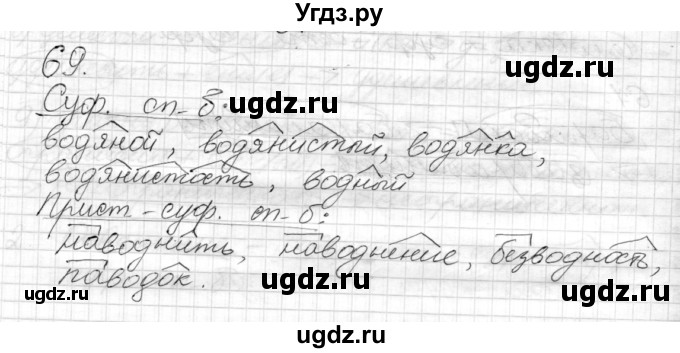 Угдз.ру
69.
Суф. сп-б:
ugdz.ru
ugdz.ru
водяной, водянистый, водянка,
водянистость, водный
ugdz.ru
Прист-суф. сп-б:
ugdz.ru
наводнить, наводнение, безводность,
паводок.
ugdz.ru
ugdz.ru
ugdz.ru